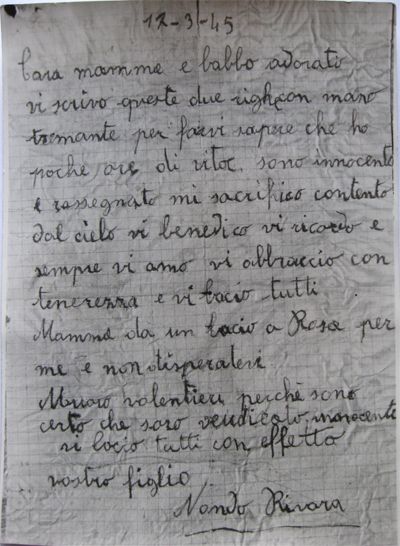 12-3-45
Cara mamma e babbo adorato
vi scrivo queste due righe con mano
tremante per farvi sapere che ho
poche ore di vita. sono innocento
e rassegnato mi sacrifico contento
dal cielo vi benedico vi ricordo e
sempre vi amo vi abbraccio con
tenerezza e vi bacio tutti.
Mamma da un bacio a Rosa per
me e non disperatevi
Muoro volentieri perchè sono
certo che saro vendicato, innocente
vi bacio tutti con effetto
vostro figlio
Nando Rivara